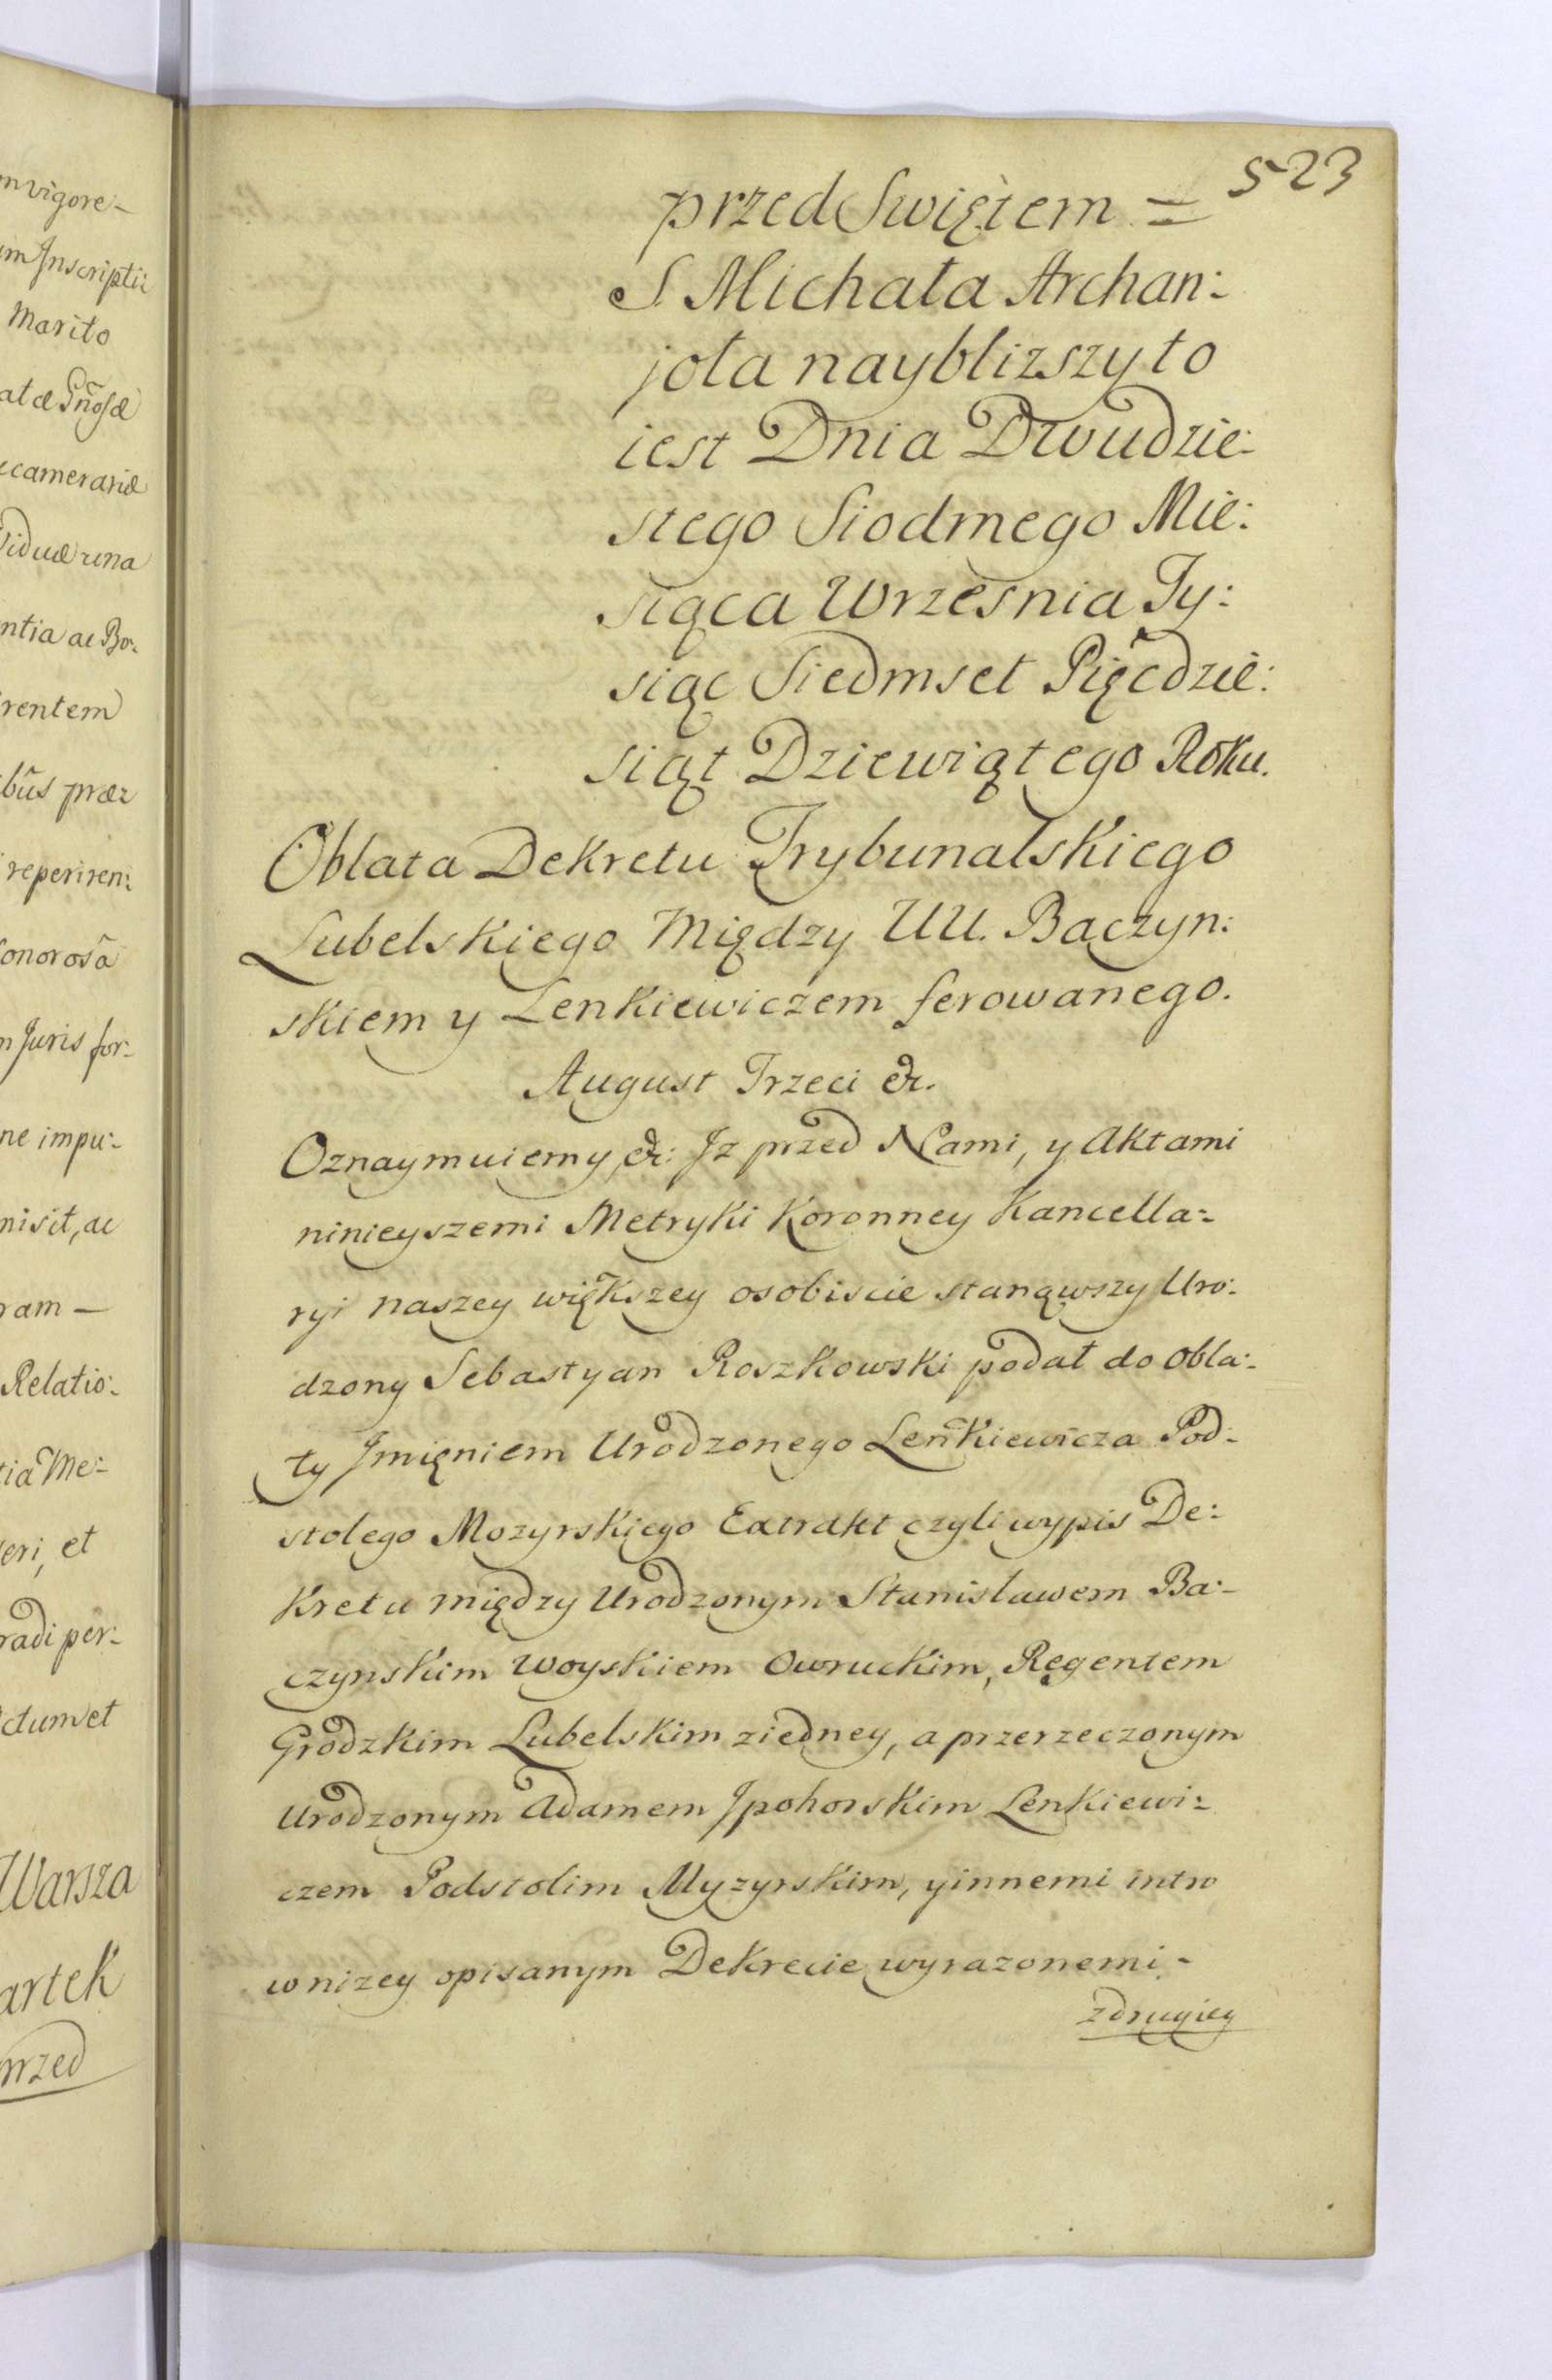 nvigore-
um Inscripti:
Marito
atæ Gñosæ
ccamerariæ
Viduæ una
ntia ac Bo:
rentem
bûs præz
reperiren:
onorosã
n Juris for:
ne impu:
nisit, ac
ram —
Relatio:
tia Me:
eri, et
radi per:
ctum et
Warsza
artek
przed
523
przed Swiętem =
S Michała Archan:
joła naybliższy to
iest Dnia Dwudzie:
stego Siodmego Mie:
siąca Wrzesnia Ty:
siąc Siedmset Pięćdzie:
siąt Dziewiątego Roku.
Oblata Dekretu Trybunalskiego
Lubelskiego Między UU. Baczyn:
skiem y Lenkiewiczem ferowanego.
August Trzeci &c.
Oznaymuiemy &c: Iz przed Nami, y Aktami
ninieyszemi Metryki Koronney Kancella:
ryi naszey większey osobiscie stanąwszy Uro:
dzony Sebastyan Roszkowski podał do obla:
ty Imięniem Urodzonego Leńkiewicza Pod:
stolego Mozyrskiego Extrakt czyli wypis De:
kretu między Urodzonym Stanisławem Ba:
czynskim Woyskiem Owruckim, Regentem
Grodzkim Lubelskim ziedney, a przerzeczonym
Urodzonym Adamem Ipohorskim Lenkiewi:
czem Podstolim Myzyrskim, y innemi intro
w nizey opisanym Dekrecie wyrazonemi -
zdrugiey